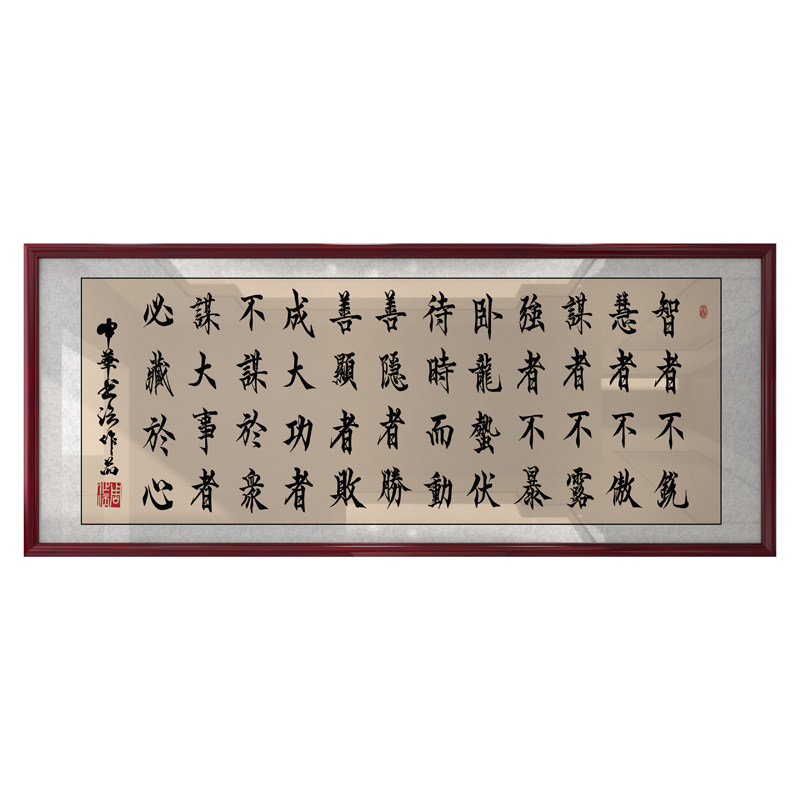 智者不銳
慧者不傲
謀者不露
強者不暴
卧龍蟄伏
待時而動
善隱者勝
善顯者敗
成大功者
不謀於衆
謀大事者
必藏於心
中華书法作品